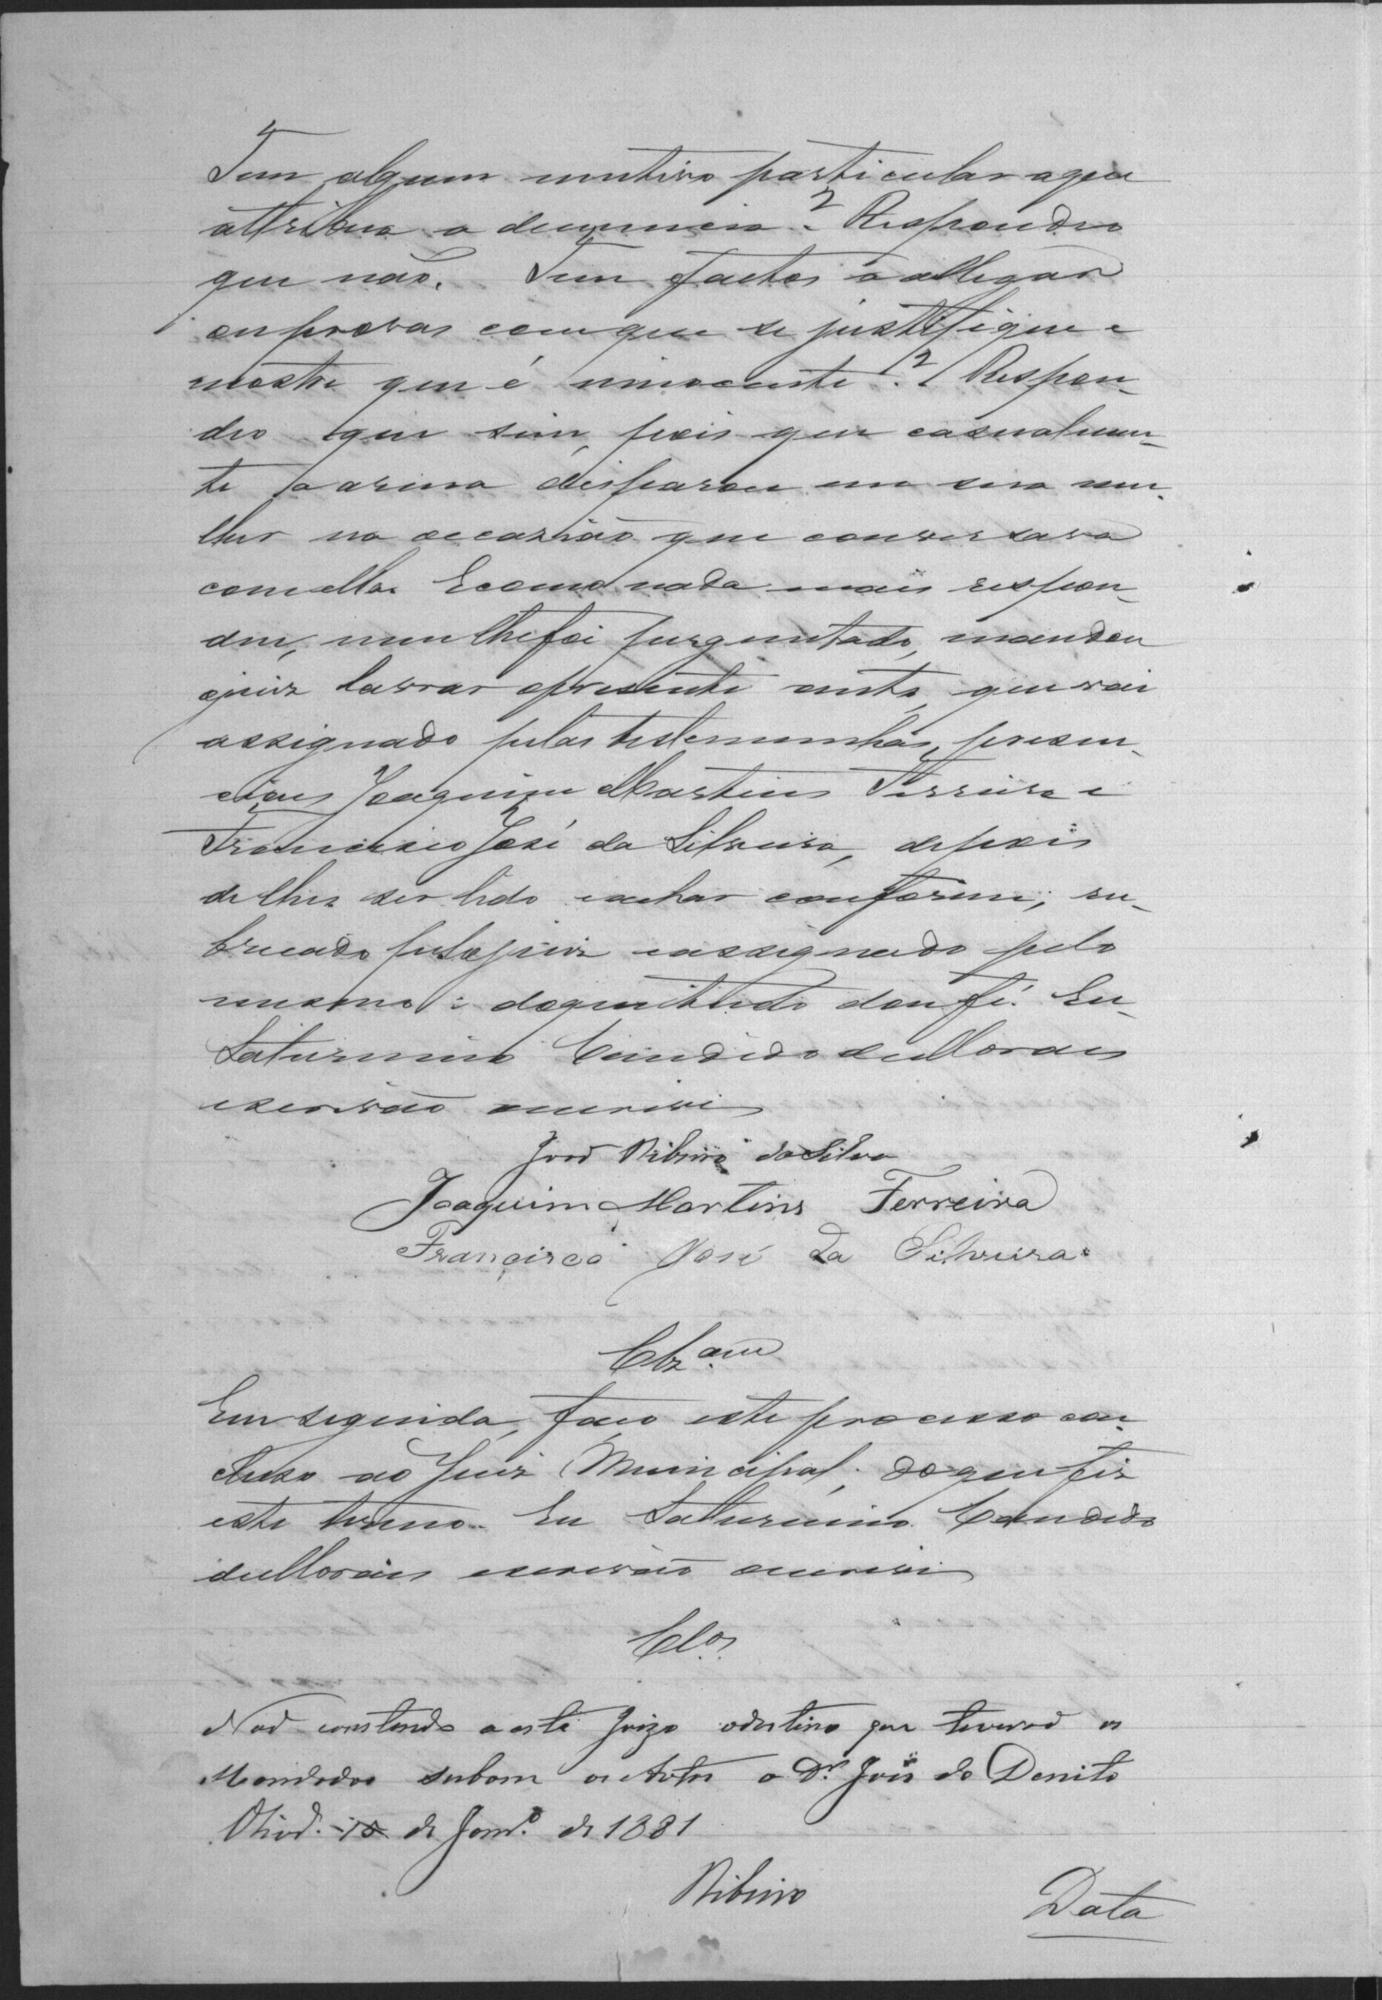 Tem algum mutivo particular aque
attribua a denuncia? Respondeo
que não. Tem factos a allegar
ou provas com que se justifique e
mostre que é innocente? Respon-
deo que sim, pois que casualmen-
te a arma disparou em sua mu-
lher na occazião que conversava
com ella. E como nada mais respon-
deu, nem lhe foi perguntado, mandou
o juiz lavrar o presente auto, que vai
assignado pelas testemunhas, presen-
ciais Joaquim Martins Ferreira e
Francisco José da Silveira, depois
de lhes ser lido e achar conforme; ru-
bricado pelo juiz e assignado pelo
mesmo: do que tudo dou fé. Eu
Saturnino Candido de Morais
escrivão escrivi
João Ribeiro da Silva
Joaquim Martins Ferreira
Francisco José da Silveira
Clz.am
Em seguida, faço este processo con-
cluso ao Juiz Municipal, do que fiz
este termo. Eu Saturnino Candido
de Morais escrivão escrivi
Clos.
Não constando a este Juizo o destino que tiverão os
Mandados subam os Autos a Dr. Juis de Dereito
de Janr.o de 1881
Ribeiro
Data